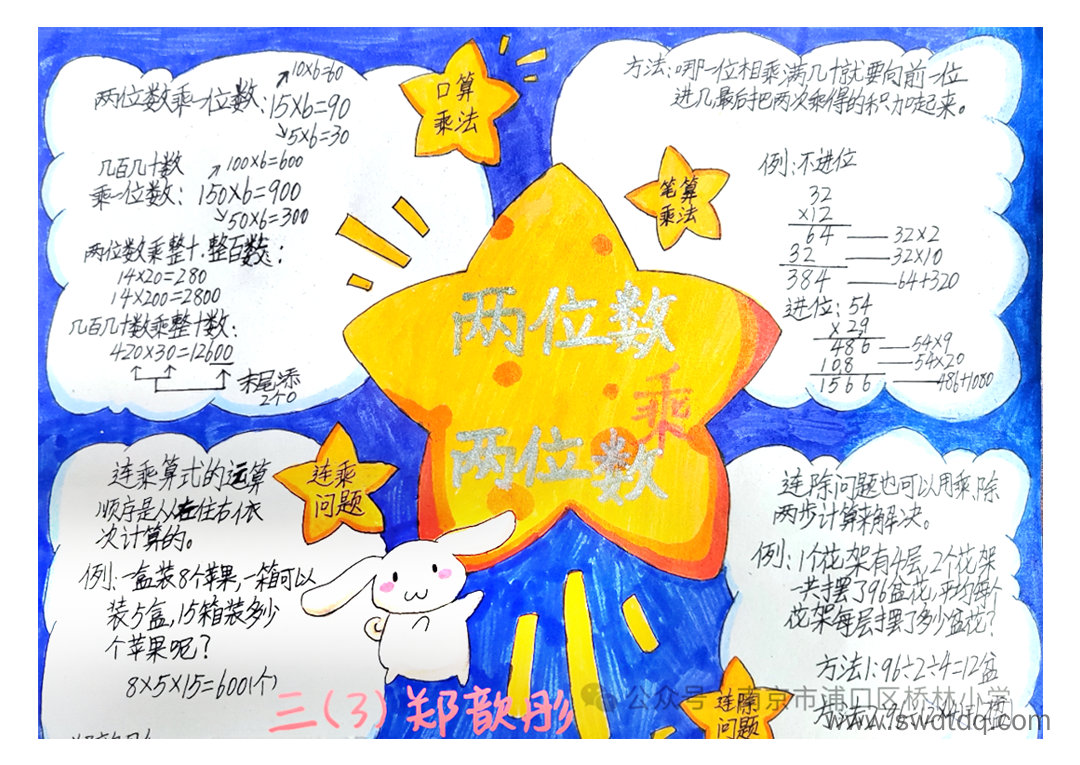 口算
乘法
两位数乘一位数:
10×6=60
15×6=90
5×6=30
几百几十数
乘一位数:
100×6=600
150×6=900
50×6=300
两位数乘整十.整百数:
14×20=280
14×200=2800
几百几十数乘整十数:
420×30=12600
末尾添
2个0
笔算
乘法
方法:哪一位相乘满几十就要向前一位
进几最后把两次乘得的积加起来。
例:不进位
32
×12
64 —— 32×2
32 —— 32×10
384 —— 64+320
进位:54
×29
486 —— 54×9
108 —— 54×20
1566 —— 486+1080
两位数
乘
两位数
连乘
问题
连乘算式的运算
顺序是从左往右依
次计算的。
例:一盒装8个苹果,一箱可以
装5盒,15箱装多少
个苹果呢?
8×5×15=600(个)
连除
问题
连除问题也可以用乘除
两步计算来解决。
例:1个花架有4层,2个花架
一共摆了96盆花,平均每个
花架每层摆了多少盆花?
方法1:96÷2÷4=12盆
三(3)郑歆彤
公众号 南京市浦口区桥林小学
www.swdtdq.com